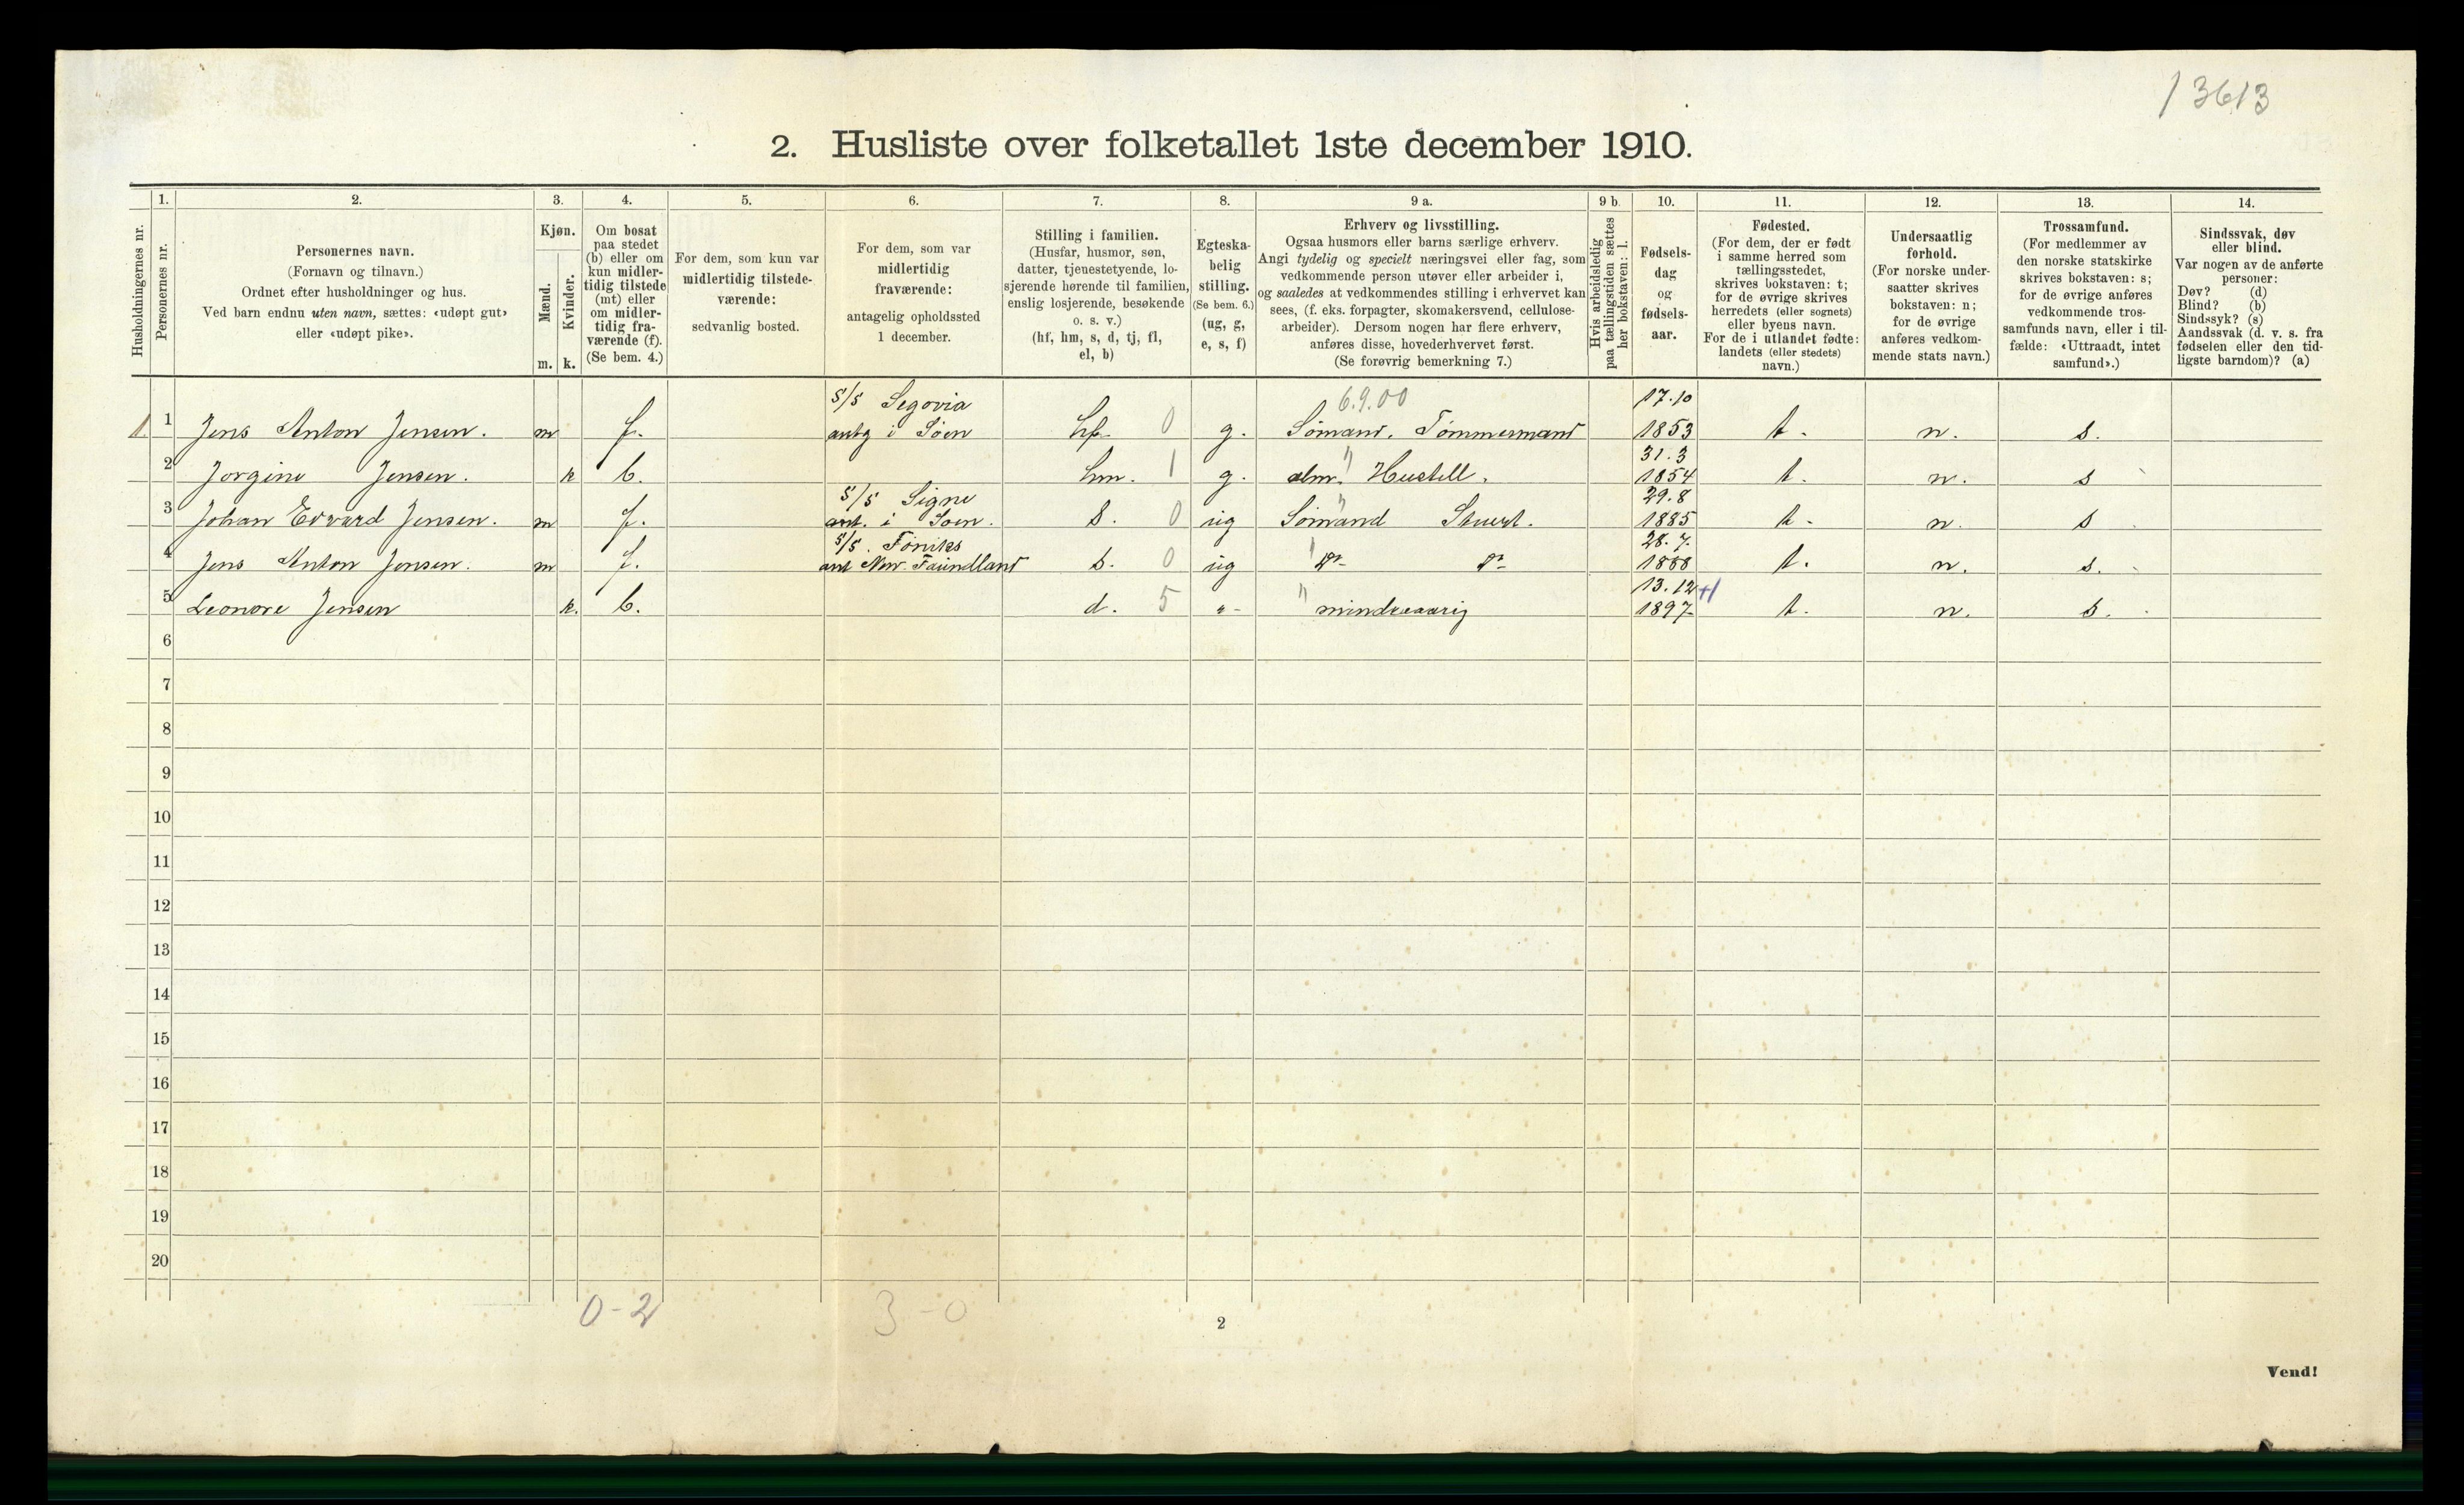 13613
2. Husliste over folketallet 1ste december 1910.
Husholdningernes nr.
1.
Personernes nr.
2.
Personernes navn.
(Fornavn og tilnavn.)
Ordnet efter husholdninger og hus.
Ved barn endnu uten navn, sættes: «udøpt gut»
eller «udøpt pike».
3.
Kjøn.
Mænd.
Kvinder.
m. k.
4.
Om bosat
paa stedet
(b) eller om
kun midler-
tidig tilstede
(mt) eller
om midler-
tidig fra-
værende (f).
(Se bem. 4.)
5.
For dem, som kun var
midlertidig tilstede-
værende:
sedvanlig bosted.
6.
For dem, som var
midlertidig
fraværende:
antagelig opholdssted
1 december.
7.
Stilling i familien.
(Husfar, husmor, søn,
datter, tjenestetyende, lo-
sjerende hørende til familien,
enslig losjerende, besøkende
o. s. v.)
(hf, hm, s, d, tj, fl,
el, b)
8.
Egteska-
belig
stilling.
(Se bem. 6.)
(ug, g,
e, s, f)
9 a.
Erhverv og livsstilling.
Ogsaa husmors eller barns særlige erhverv.
Angi tydelig og specielt næringsvei eller fag, som
vedkommende person utøver eller arbeider i,
og saaledes at vedkommendes stilling i erhvervet kan
sees, (f. eks. forpagter, skomakersvend, cellulose-
arbeider). Dersom nogen har flere erhverv,
anføres disse, hovederhvervet først.
(Se forøvrig bemerkning 7.)
9 b.
Hvis arbeidsledig
paa tællingstiden sættes
her bokstaven: l.
10.
Fødsels-
dag
og
fødsels-
aar.
11.
Fødested.
(For dem, der er født
i samme herred som
tællingsstedet,
skrives bokstaven: t;
for de øvrige skrives
herredets (eller sognets)
eller byens navn.
For de i utlandet fødte:
landets (eller stedets)
navn.)
12.
Undersaatlig
forhold.
(For norske under-
saatter skrives
bokstaven: n;
for de øvrige
anføres vedkom-
mende stats navn.)
13.
Trossamfund.
(For medlemmer av
den norske statskirke
skrives bokstaven: s;
for de øvrige anføres
vedkommende tros-
samfunds navn, eller i til-
fælde: «Uttraadt, intet
samfund».)
14.
Sindssvak, døv
eller blind.
Var nogen av de anførte
personer:
Døv? (d)
Blind? (b)
Sindssyk? (s)
Aandssvak (d. v. s. fra
fødselen eller den tid-
ligste barndom)? (a)
S/S Segovia 6.9.00 17.10
1 1 Jens Anton Jensen. m f. antg i Söen hf. 0 g. Sömand. Tömmermand 1853 t. n. s.
31.3
2 Jorgine Jensen. k b. hm. 1 g. alm. " Hustell. 1854 t. n. s
S/S Signe 29.8
3 Johan Edvard Jensen. m f. ant. i Söen. s. 0 ug Sömand " Stuert. 1885 t. n. s
S/S. Föniks 28.7.
4 Jens Anton Jensen. m f. ant New. Faundland s. 0 ug do do 1888 t. n. s.
13.12 +1
5 Leonore Jensen k. b. d. 5 " " mindreaarig 1897 t. n. s.
6
7
8
9
10
11
12
13
14
15
16
17
18
19
20
0-2 3-0
2
Vend!